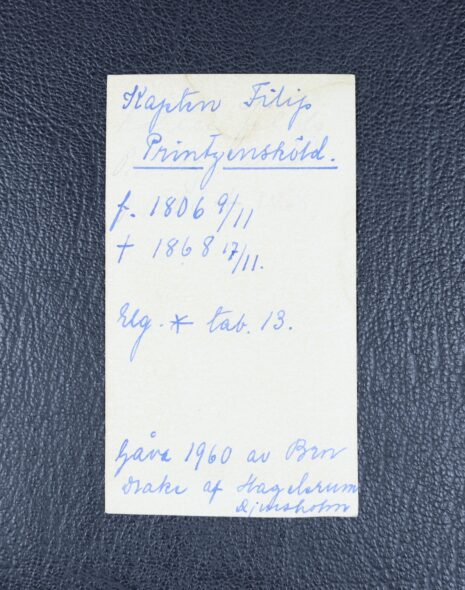 Kapten Filip
Printzensköld.
f. 1806 9/11
† 1868 17/11.
Elg. * tab. 13.
Gåva 1960 av Brn
Drake af Hagelsrum
Djursholm